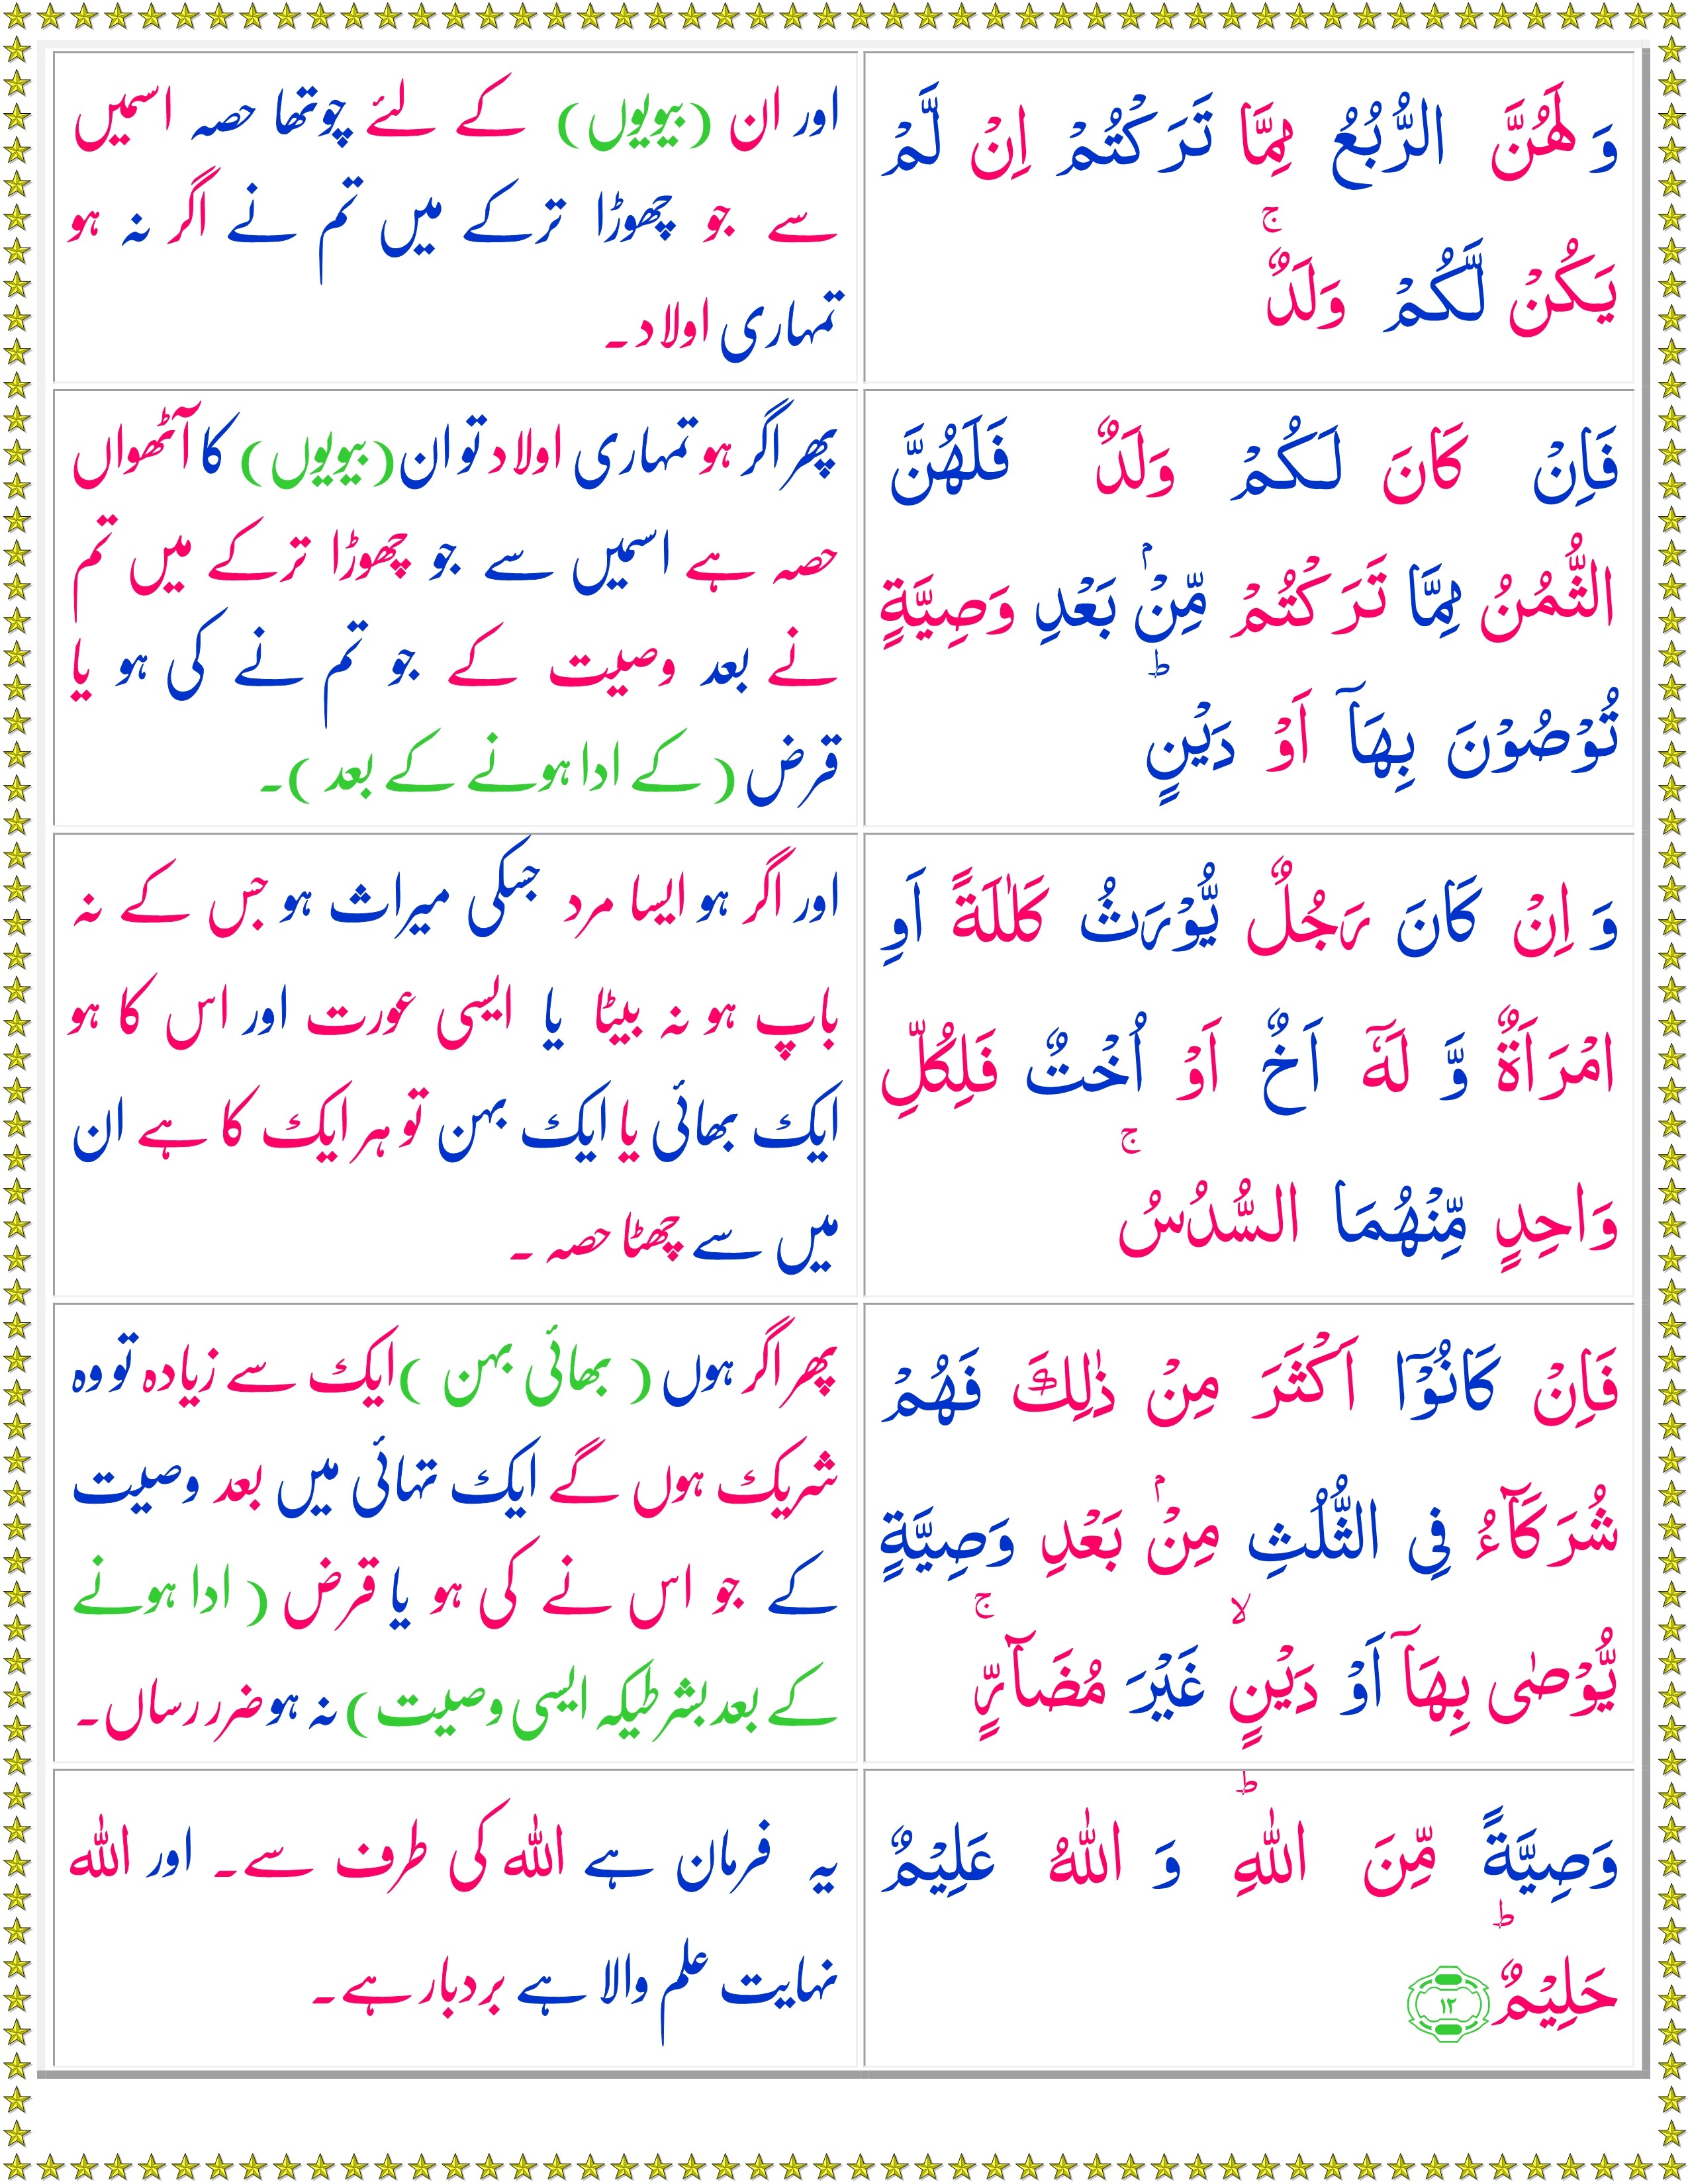 وَ لَهُنَّ الرُّبُعُ مِمَّا تَرَكْتُمْ اِنْ لَّمْ
يَكُنْ لَّكُمْ وَلَدٌ ۚ
اور ان (بیویوں) کے لئے چوتھا حصہ اسمیں
سے جو چھوڑا ترکے میں تم نے اگر نہ ہو
تمہاری اولاد۔
فَاِنْ كَانَ لَكُمْ وَلَدٌ فَلَهُنَّ
الثُّمُنُ مِمَّا تَرَكْتُمْ مِّنْۢ بَعْدِ وَصِيَّةٍ
تُوْصُوْنَ بِهَاۤ اَوْ دَيْنٍ ؕ
پھر اگر ہو تمہاری اولاد تو ان (بیویوں) کا آٹھواں
حصہ ہے اسمیں سے جو چھوڑا ترکے میں تم
نے بعد وصیت کے جو تم نے کی ہو یا
قرض (کے ادا ہونے کے بعد)۔
وَ اِنْ كَانَ رَجُلٌ يُّوْرَثُ كَلٰلَةً اَوِ
امْرَاَةٌ وَّ لَهٗۤ اَخٌ اَوْ اُخْتٌ فَلِكُلِّ
وَاحِدٍ مِّنْهُمَا السُّدُسُ ۚ
اور اگر ہو ایسا مرد جسکی میراث ہو جس کے نہ
باپ ہو نہ بیٹا یا ایسی عورت اور اس کا ہو
ایک بھائی یا ایک بہن تو ہر ایک کا ہے ان
میں سے چھٹا حصہ۔
فَاِنْ كَانُوْۤا اَكْثَرَ مِنْ ذٰلِكَ فَهُمْ
شُرَكَآءُ فِى الثُّلُثِ مِنْۢ بَعْدِ وَصِيَّةٍ
يُّوْصٰى بِهَاۤ اَوْ دَيْنٍ ۙ غَيْرَ مُضَآرٍّ ۚ
پھر اگر ہوں (بھائی بہن) ایک سے زیادہ تو وہ
شریک ہوں گے ایک تہائی میں بعد وصیت
کے جو اس نے کی ہو یا قرض (ادا ہونے
کے بعد بشرطیکہ ایسی وصیت) نہ ہو ضرر رساں۔
وَصِيَّةً مِّنَ اللّٰهِ ؕ وَ اللّٰهُ عَلِيْمٌ
حَلِيْمٌ ؕ ۱۲
یہ فرمان ہے اللہ کی طرف سے۔ اور اللہ
نہایت علم والا ہے بردبار ہے۔